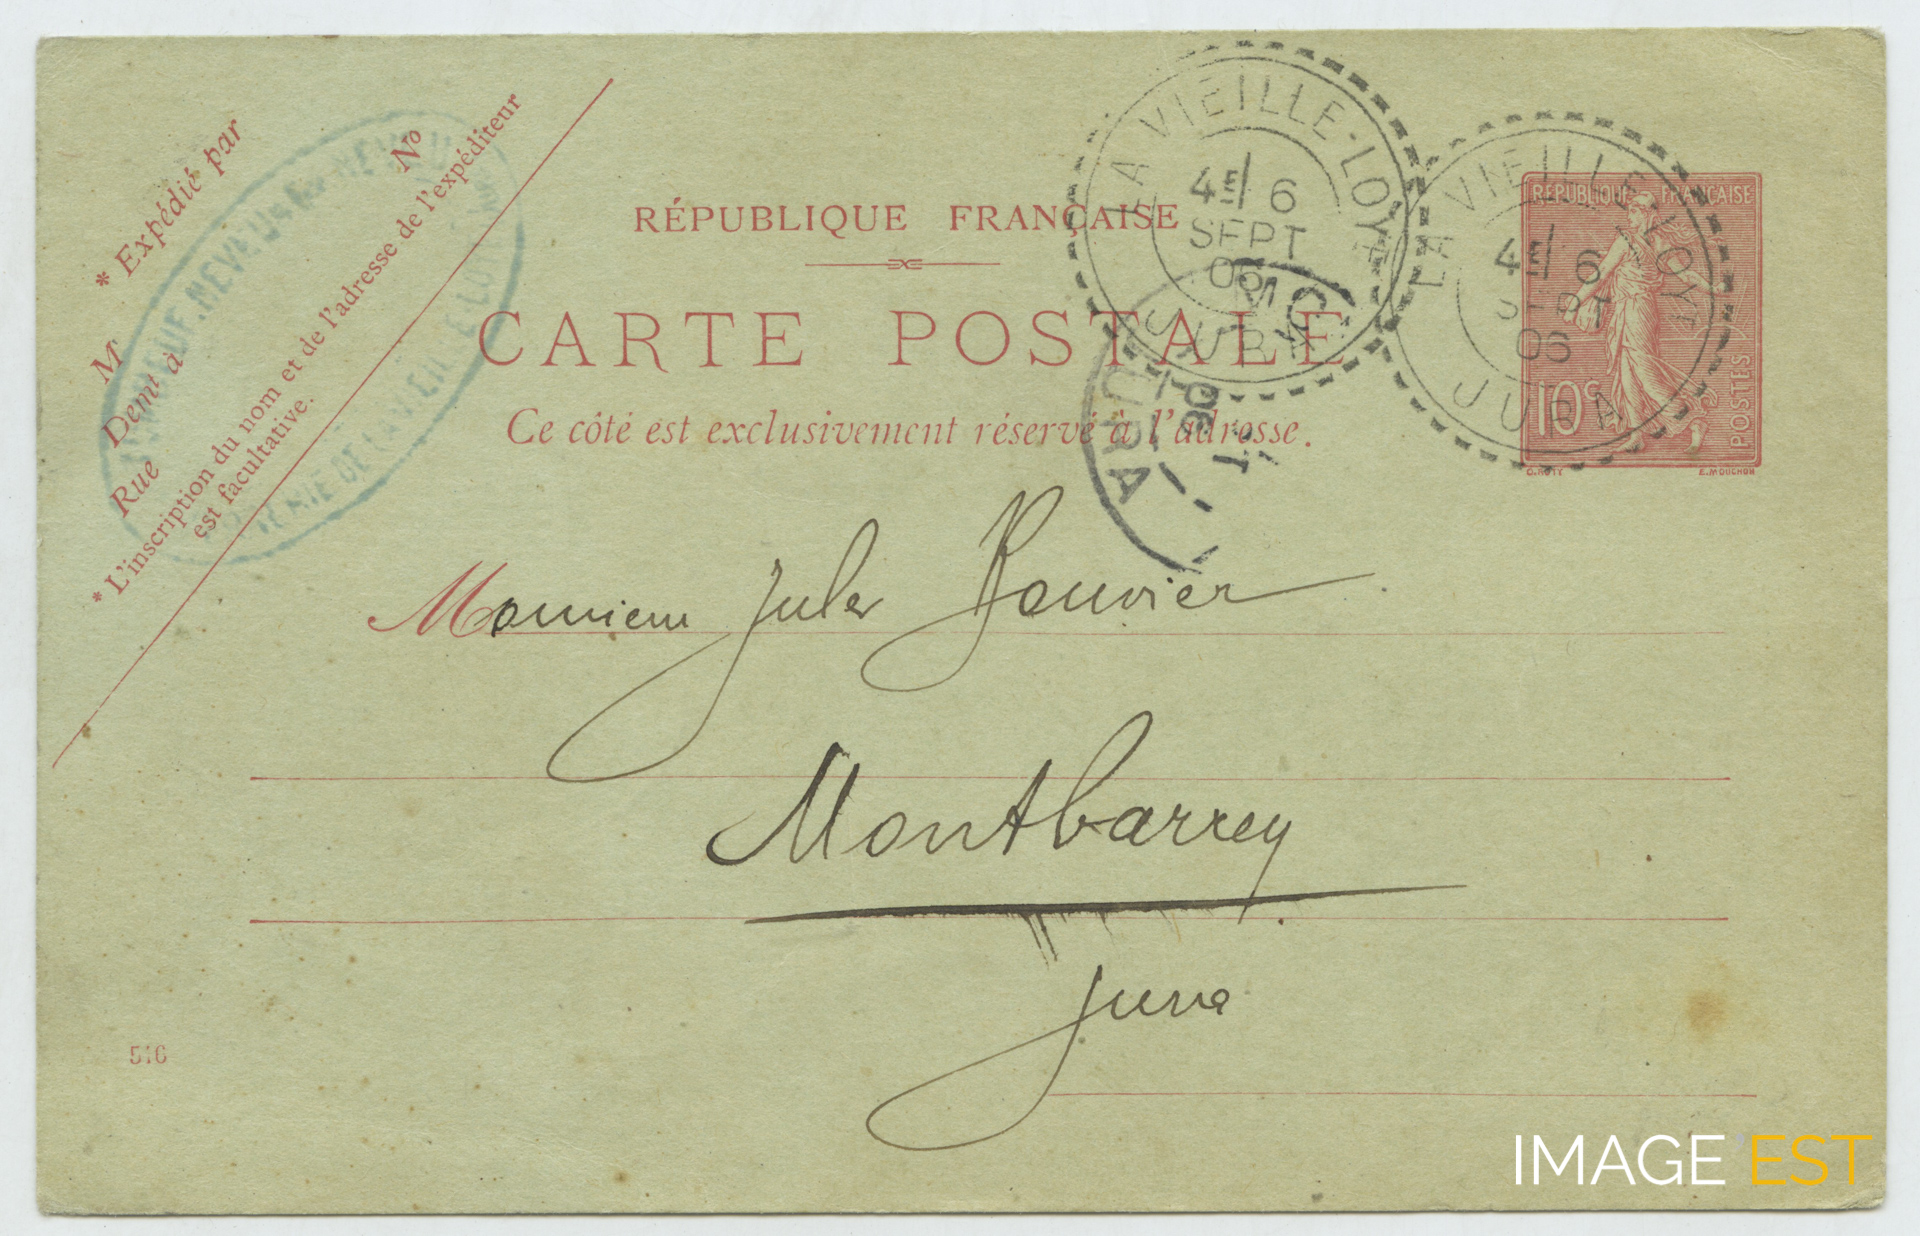 * Expédié par
M
N°
Demt à
Rue
* L'inscription du nom et de l'adresse de l'expéditeur
est facultative.
VERRERIE DE LA VIEILLE-LOYE
RÉPUBLIQUE FRANÇAISE
CARTE POSTALE
Ce côté est exclusivement réservé à l'adresse.
LA VIEILLE-LOYE
4E 6
SEPT
06
JURA
LA VIEILLE-LOYE
4E 6
SEPT
06
JURA
JURA
RÉPUBLIQUE FRANÇAISE
10c
POSTES
O. ROTY
E. MOUCHON
Monsieur Jules Bouvier
Montbarrey
Jura
516
IMAGE'EST